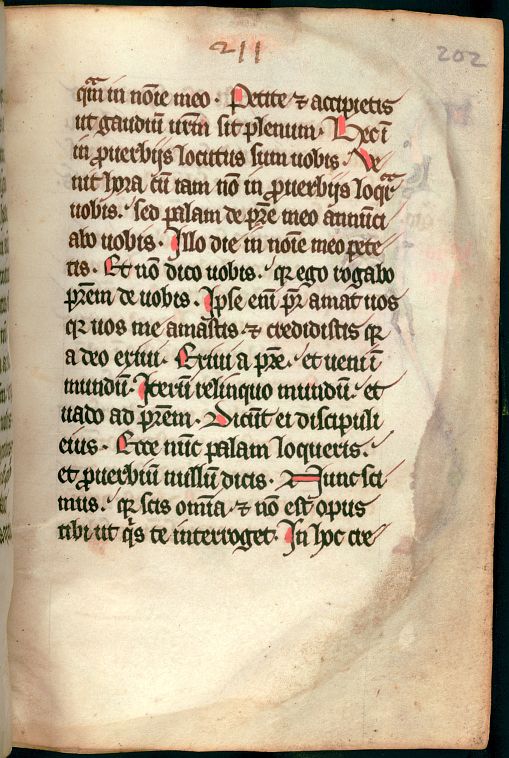 211
202
qm̄ in nōie meo. Petite ⁊ accipietis
ut gaudiū urm̄ sit plenum. Hec ī
in ꝓuerbijs locutus sum uobis. Ve
nit hora cū iam nō in ꝓuerbijs loqr̄
uobis. sed palam de pr̄e meo annūci
abo uobis. Illo die in nōie meo pete
tis. Et nō dico uobis. qꝛ ego rogabo
pr̄em de uobis. Ipse eni pr̄ amat uos
qꝛ uos me amastis ⁊ credidistis qꝛ
a deo exiui. Exiui a pr̄e. et ueni ī
mundū. Iterū relinquo mundū. et
uado ad pr̄em. Dicūt ei discipuli
eius. Ecce nūc palam loqueris.
et ꝓuerbiū nullū dicis. Nunc sci
mus. qꝛ scis om̄ia ⁊ nō est opus
tibi ut q̇s te interroget. In hoc cre